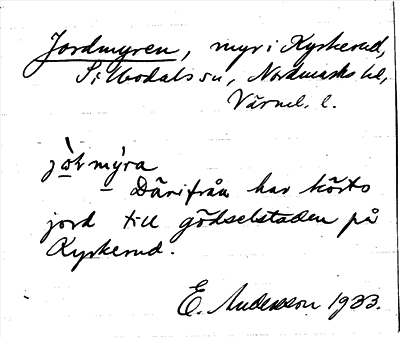 Jordmyren, myr i Kyrkerud,
Silbodals sn, Nordmarks hd,
Värml. l.
jo̱rmýra
Därifrån har körts
jord till gödselstaden på
Kyrkerud.
E. Andersson 1933.